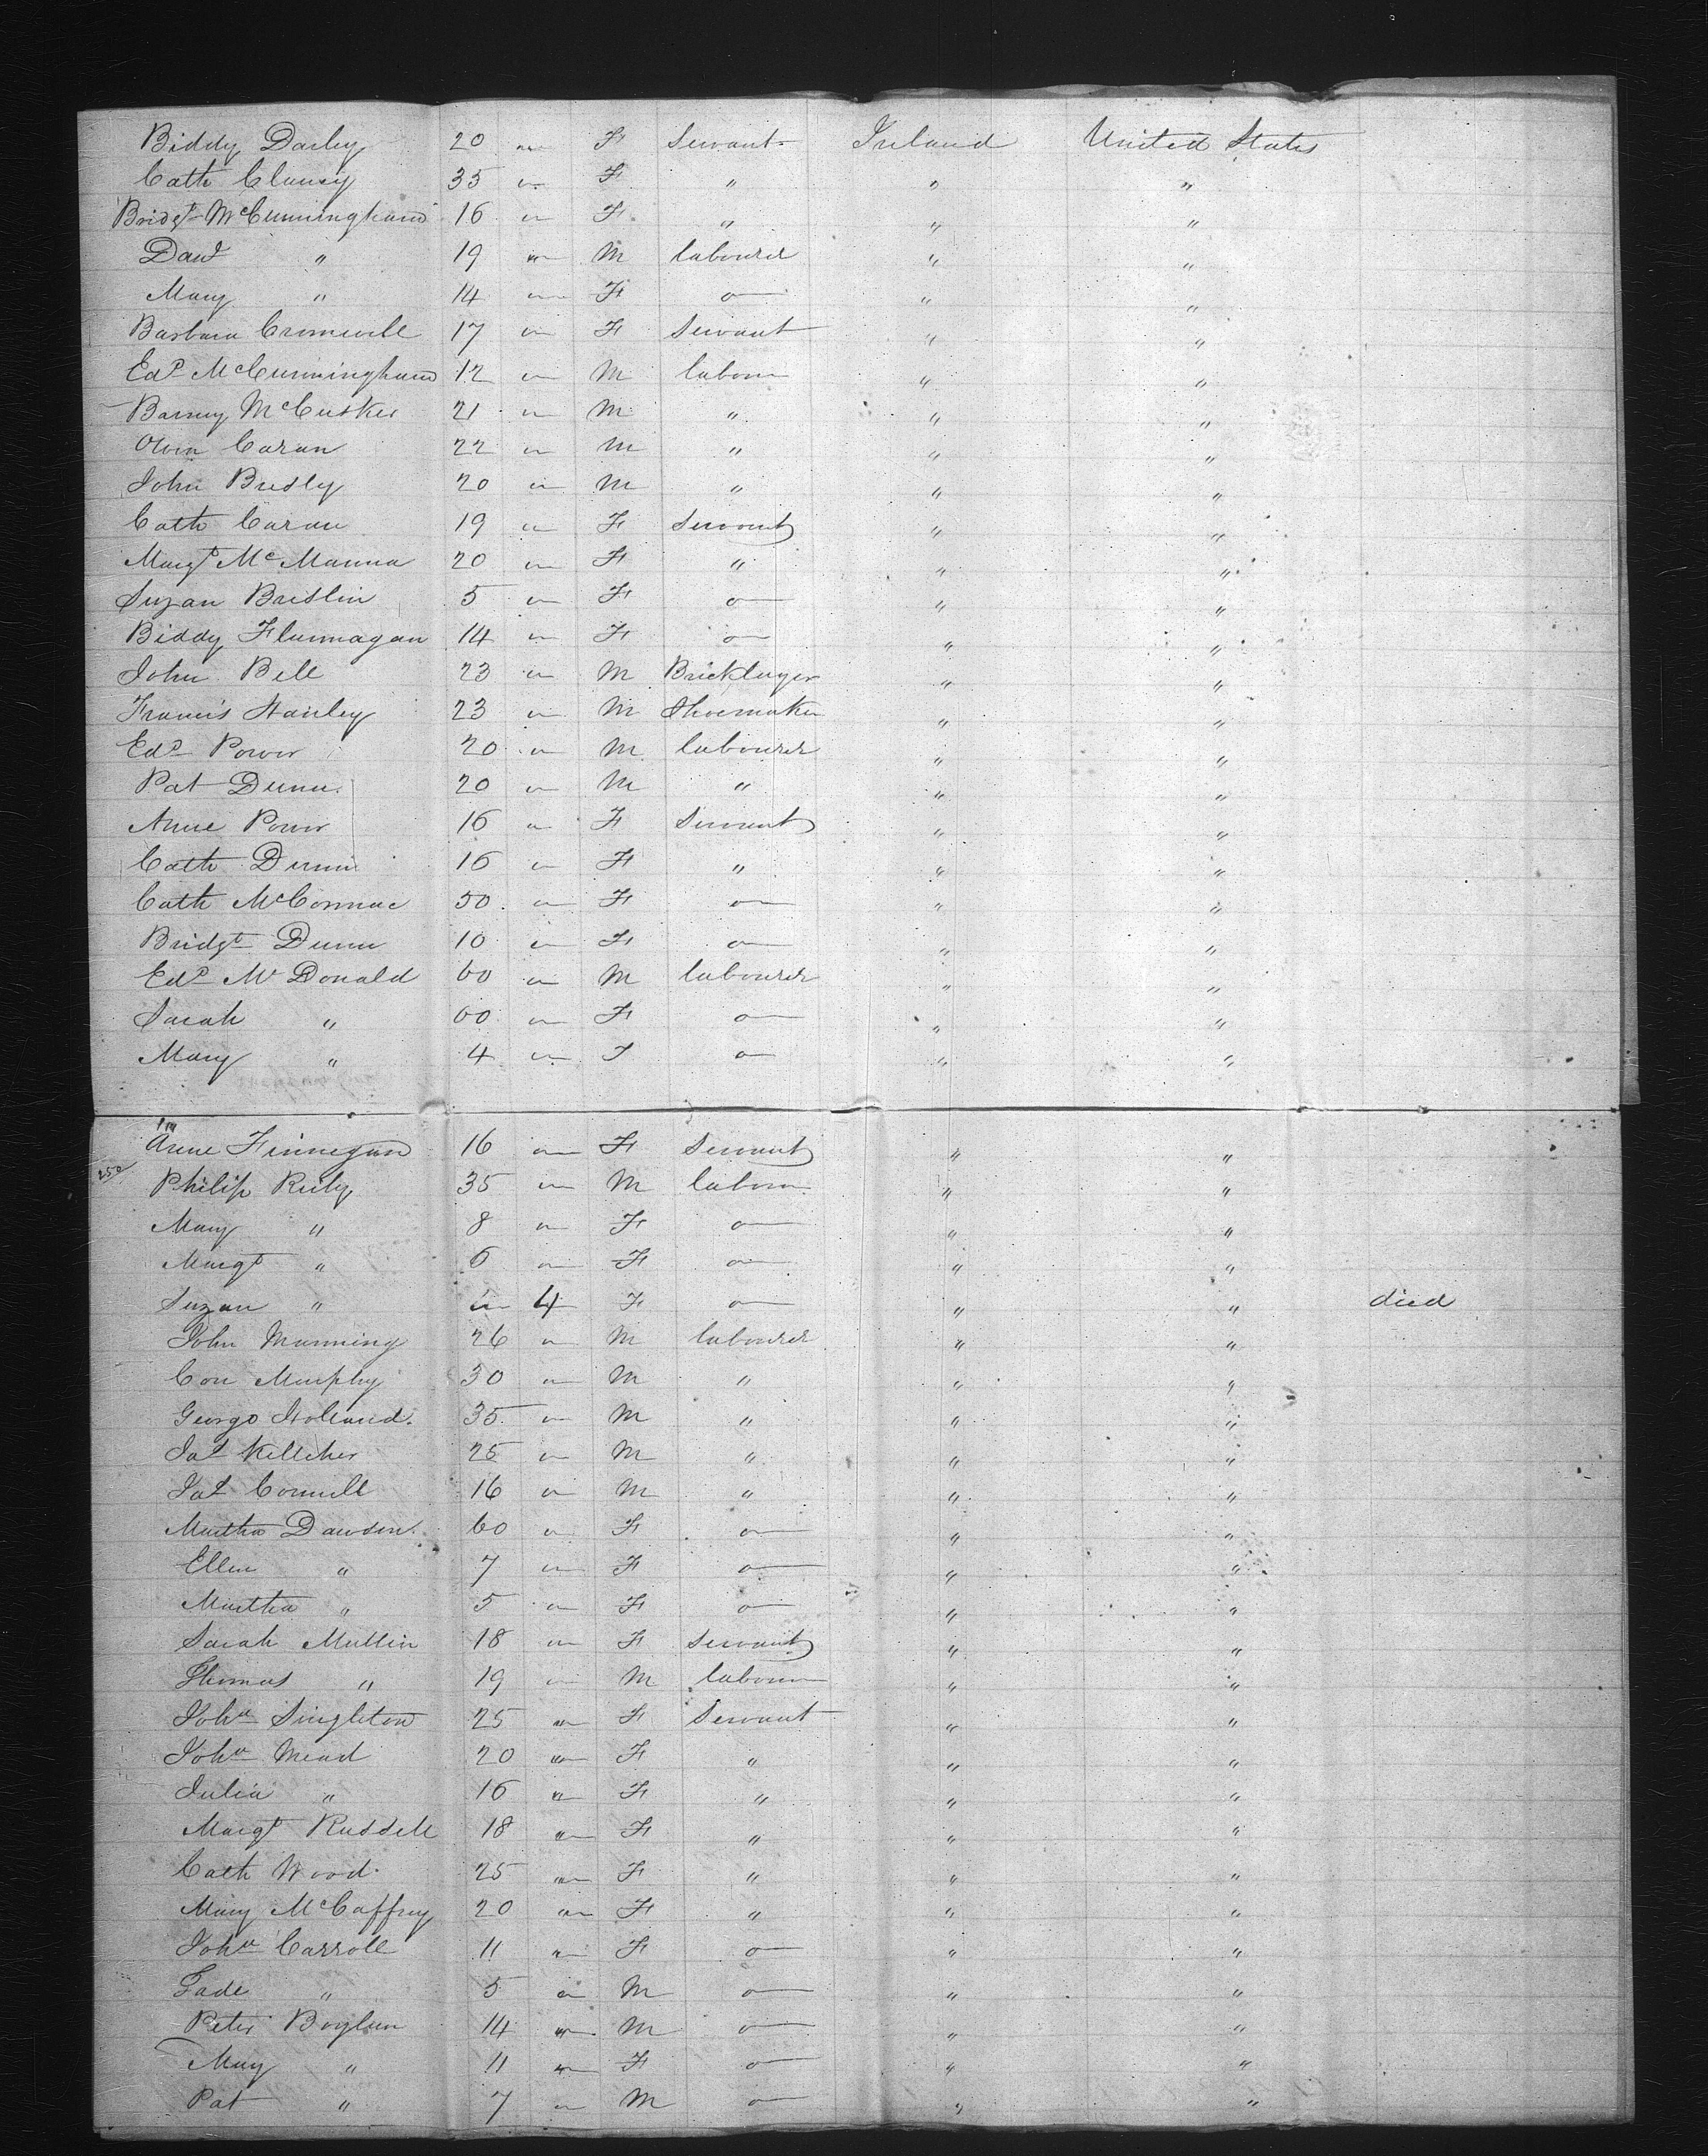 Biddy Darley 20 " F Servant Ireland United States
Cath Clancy 35 " F " " "
Bridgt McCunningham 16 " F " " "
Danl " 19 " M labourer " "
Mary " 14 " F — " "
Barbara Cromwell 17 " F Servant " "
Edd McCunningham 12 " M labour " "
Barney McCusker 21 " M " " "
Owen Caran 22 " M " " "
John Bresly 20 " M " " "
Cath Caran 19 " F Servant " "
Margt McManna 20 " F " " "
Suzan Brislin 5 " F — " "
Biddy Flannagan 14 " F — " "
John Bell 23 " M Bricklayer " "
Francis Hanley 23 " M Shoemaker " "
Edd Power 20 " M labourer " "
Pat Dunn 20 " M " " "
Anne Power 16 " F Servant " "
Cath Dunn 16 " F " " "
Cath McCormac 50 " F — " "
Bridgt Dunn 10 " F — " "
Edd McDonald 60 " M labourer " "
Sarah " 60 " F — " "
Mary " 4 " F — " "
Anne Finnegan 16 " F Servant " "
250 Philip Reily 35 " M labour " "
Mary " 8 " F — " "
Margt " 6 " F — " "
Suzan " " 4 F — " " died
John Manning 26 " M labourer " "
Con Murphy 30 " M " " "
George Holland 35 " M " " "
Jas Kelleher 25 " M " " "
Jas Connell 16 " M " " "
Martha Dawson 60 " F — " "
Ellen " 7 " F — " "
Martha " 5 " F — " "
Sarah Mullin 18 " F Servant " "
Thomas " 19 " M labour " "
Joha Singleton 25 " F Servant " "
Joha Mead 20 " F " " "
Julia " 16 " F " " "
Margt Russell 18 " F " " "
Cath Wood 25 " F " " "
Mary McCaffrey 20 " F " " "
Joha Carroll 11 " F — " "
" 5 " M — " "
Peter Boylan 14 " M — " "
May " 11 " F — " "
Pat " 7 " M — " "